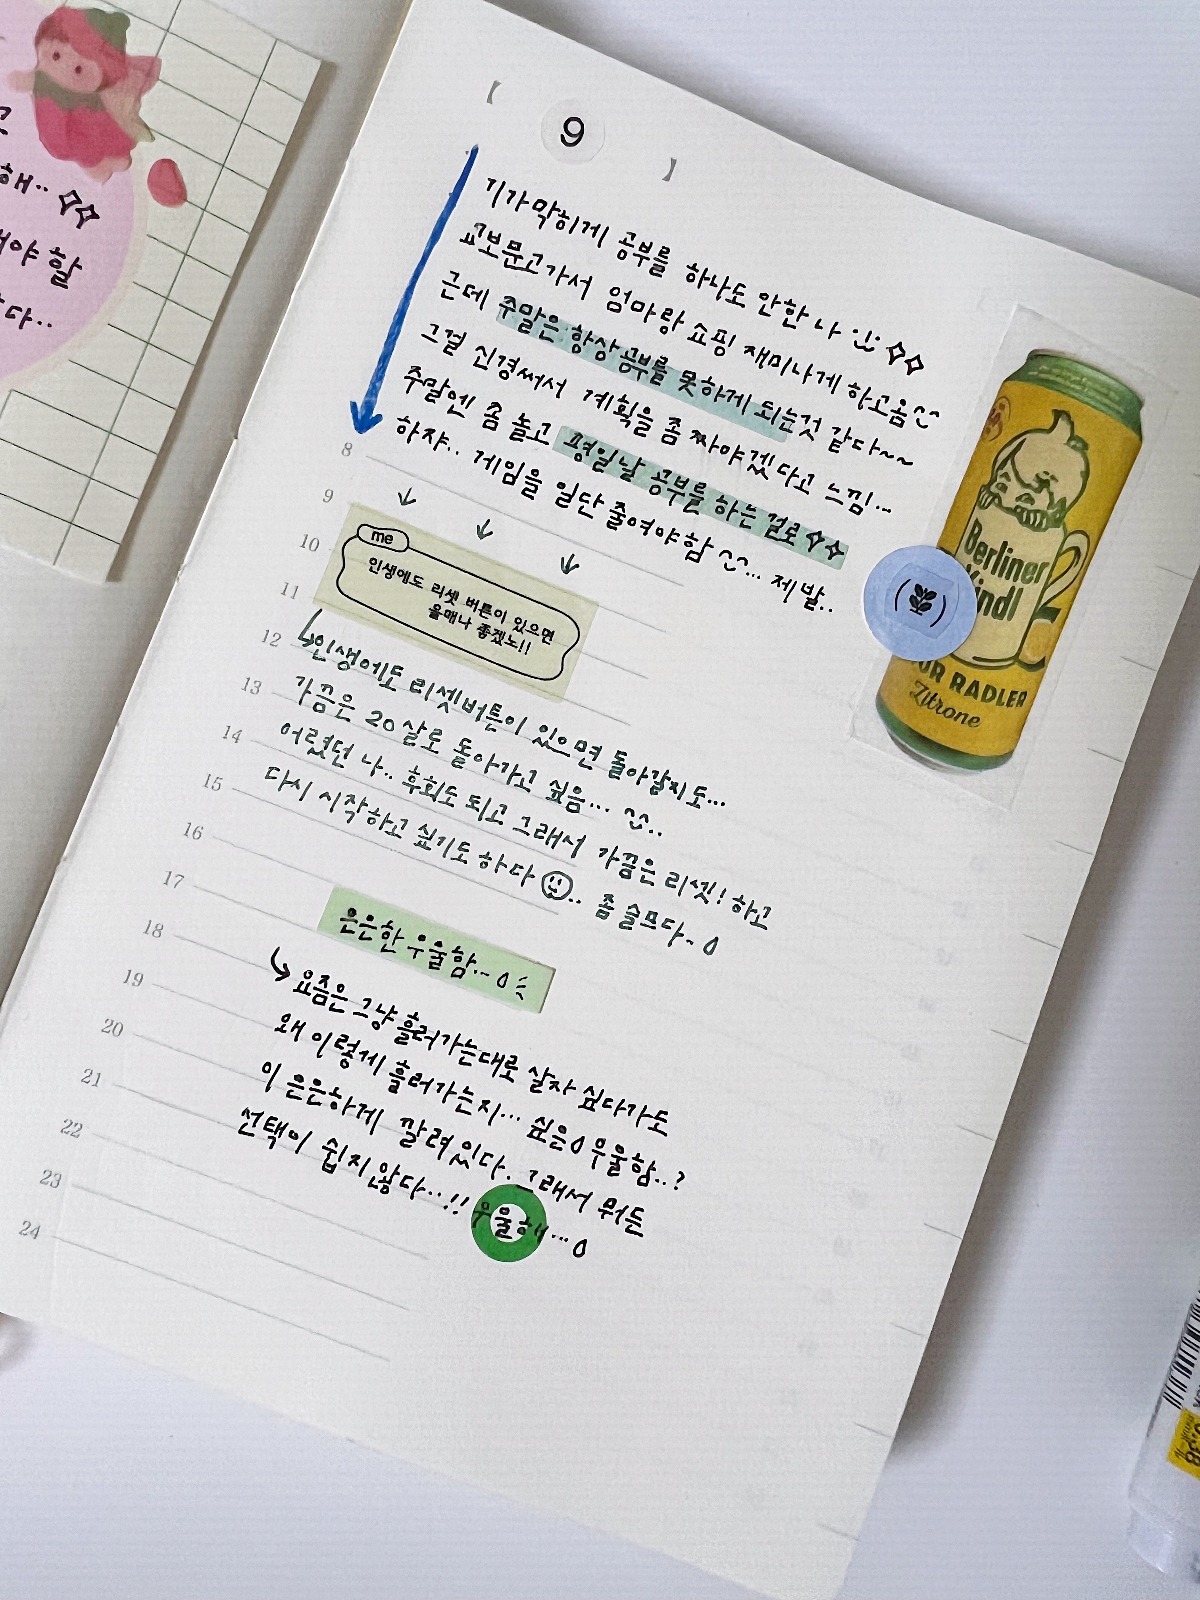 해..
해야 할
다..
【 9 】
기가막히게 공부를 하나도 안한 나
교보문고가서 엄마랑 쇼핑 재미나게 하고옴^^
근데 주말은 항상 공부를 못하게 되는것 같다~~
그걸 신경써서 계획을 좀 짜야겠다고 느낌!...
주말엔 좀 놀고 평일날 공부를 하는 걸로
하쟈.. 게임을 일단 줄여야함 ^^... 제발..
me
인생에도 리셋 버튼이 있으면
을매나 좋겠노!!
인생에도 리셋버튼이 있으면 돌아갈지도...
가끔은 20살로 돌아가고 싶음... ^^..
어렸던 나.. 후회도 되고 그래서 가끔은 리셋! 하고
다시 시작하고 싶기도 하다 .. 좀 슬프다~
은은한 우울함...
요즘은 그냥 흘러가는대로 살자 싶다가도
왜 이렇게 흘러가는지... 싶은 우울함..?
이 은은하게 깔려있다. 그래서 뭐든
선택이 쉽지않다..!! 우울해...
8
9
10
11
12
13
14
15
16
17
18
19
20
21
22
23
24
Berliner
Kindl
RADLER
Zitrone